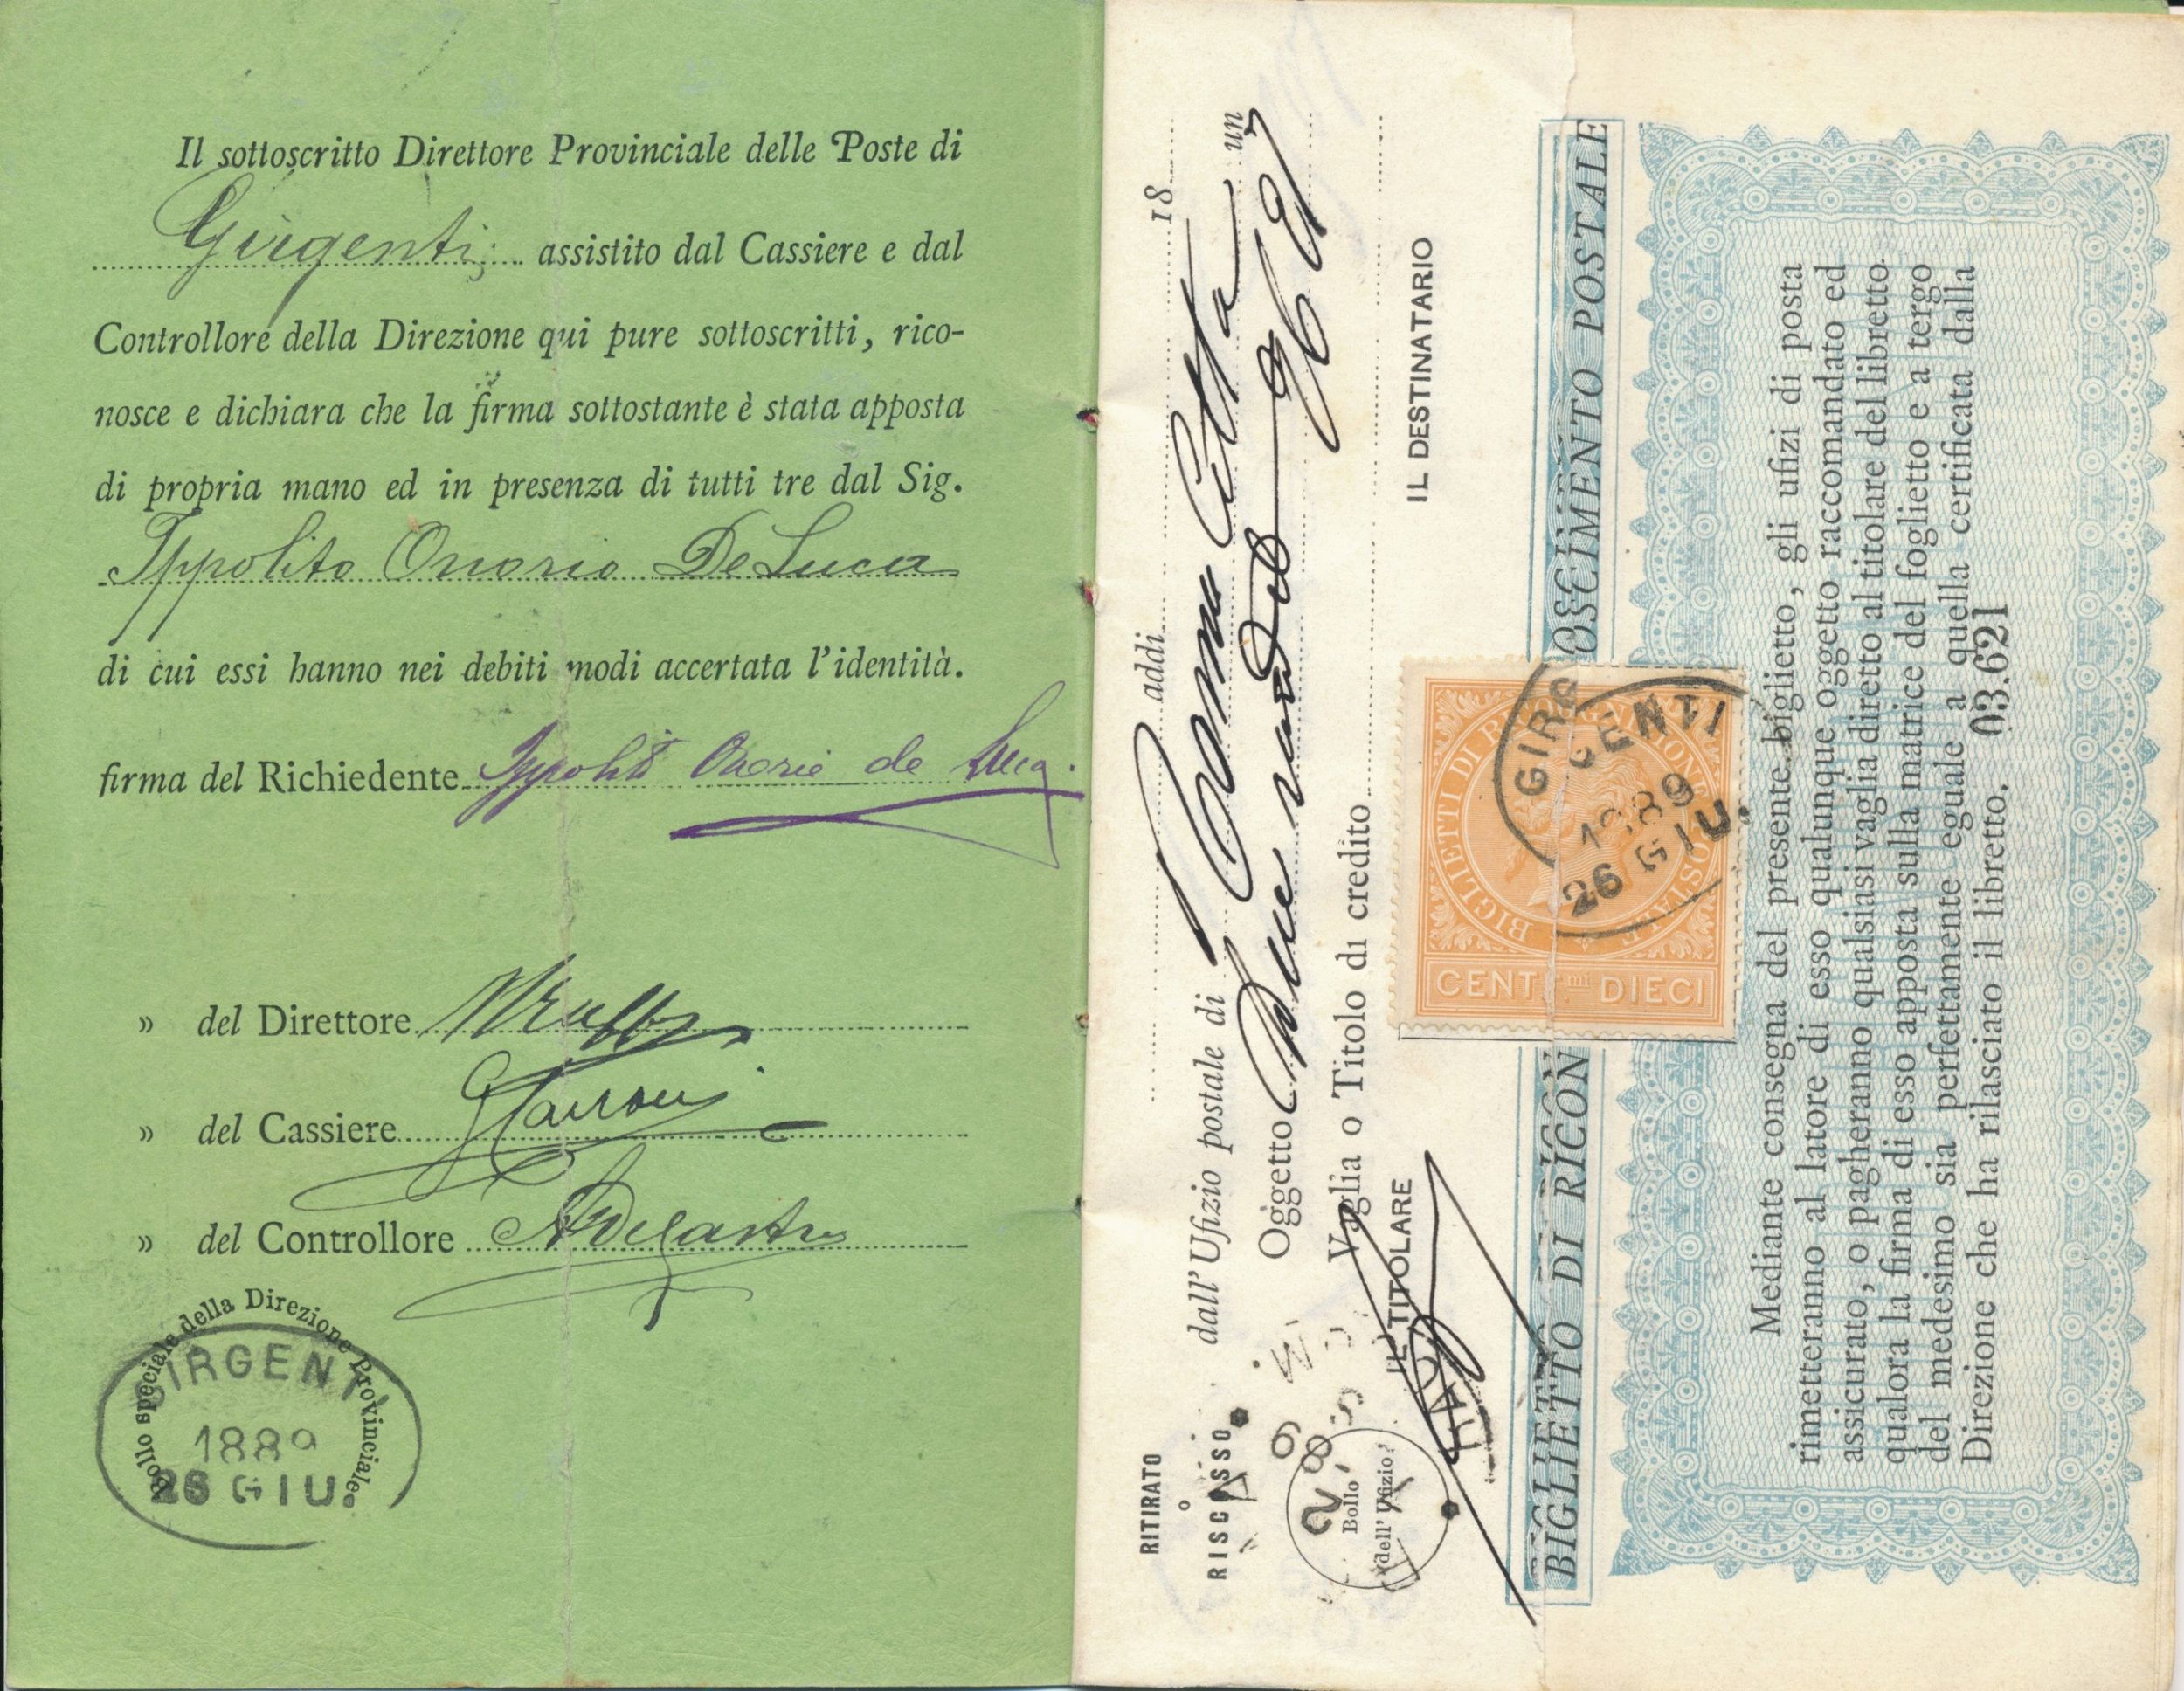 Il sottoscritto Direttore Provinciale delle Poste di
Girgenti assistito dal Cassiere e dal
Controllore della Direzione qui pure sottoscritti, rico-
nosce e dichiara che la firma sottostante è stata apposta
di propria mano ed in presenza di tutti tre dal Sig.
Ippolito Onorio De Luca
di cui essi hanno nei debiti modi accertata l'identità.
firma del Richiedente Ippolito Onorio de Luca
» del Direttore
» del Cassiere
» del Controllore
Bollo speciale della Direzione Provinciale
GIRGENTI
1889
26 GIU.
RITIRATO
o
RISCOSSO
addi 18
dall' Ufizio postale di Parma Città un
Oggetto
Vaglia o Titolo di credito
Bollo
dell' Ufizio
IL TITOLARE
IL DESTINATARIO
BIGLIETTI DI RICOGNIZIONE POSTALE
BIGLIETTI DI RICOGNIZIONE POSTALE
CENT.mi DIECI
GIRGENTI
1889
26 GIU.
BIGLIETTO DI RICONOSCIMENTO POSTALE
Mediante consegna del presente biglietto, gli ufizi di posta
rimetteranno al latore di esso qualunque oggetto raccomandato ed
assicurato, o pagheranno qualsiasi vaglia diretto al titolare del libretto
qualora la firma di esso apposta sulla matrice del foglietto e a tergo
del medesimo sia perfettamente eguale a quella certificata dalla
Direzione che ha rilasciato il libretto. 03.621